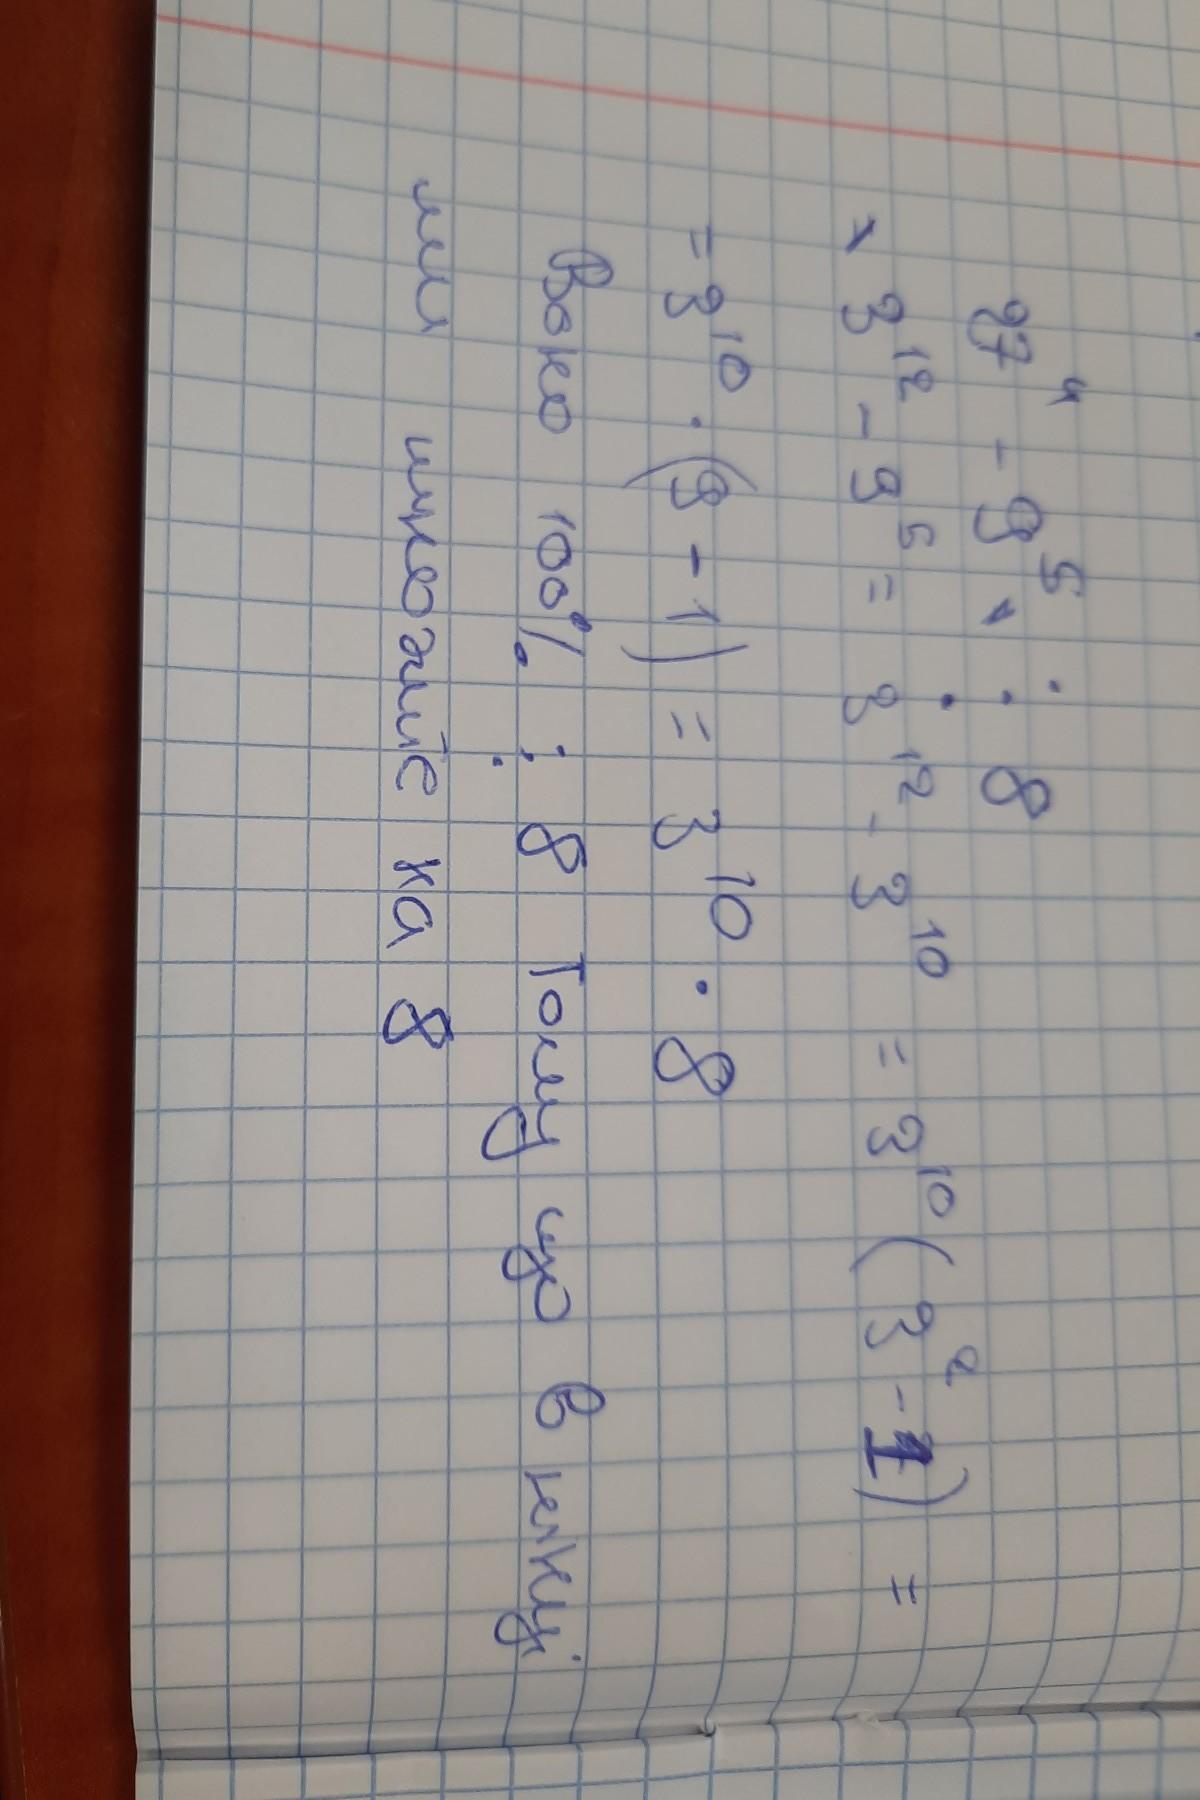 27⁴ - 9⁵ ⋮ 8
3¹² - 9⁵ = 3¹² - 3¹⁰ = 3¹⁰(3² - 1) =
= 3¹⁰ · (9 - 1) = 3¹⁰ · 8
Воно 100% ⋮ 8 Тому що в кінці
ми множиме на 8